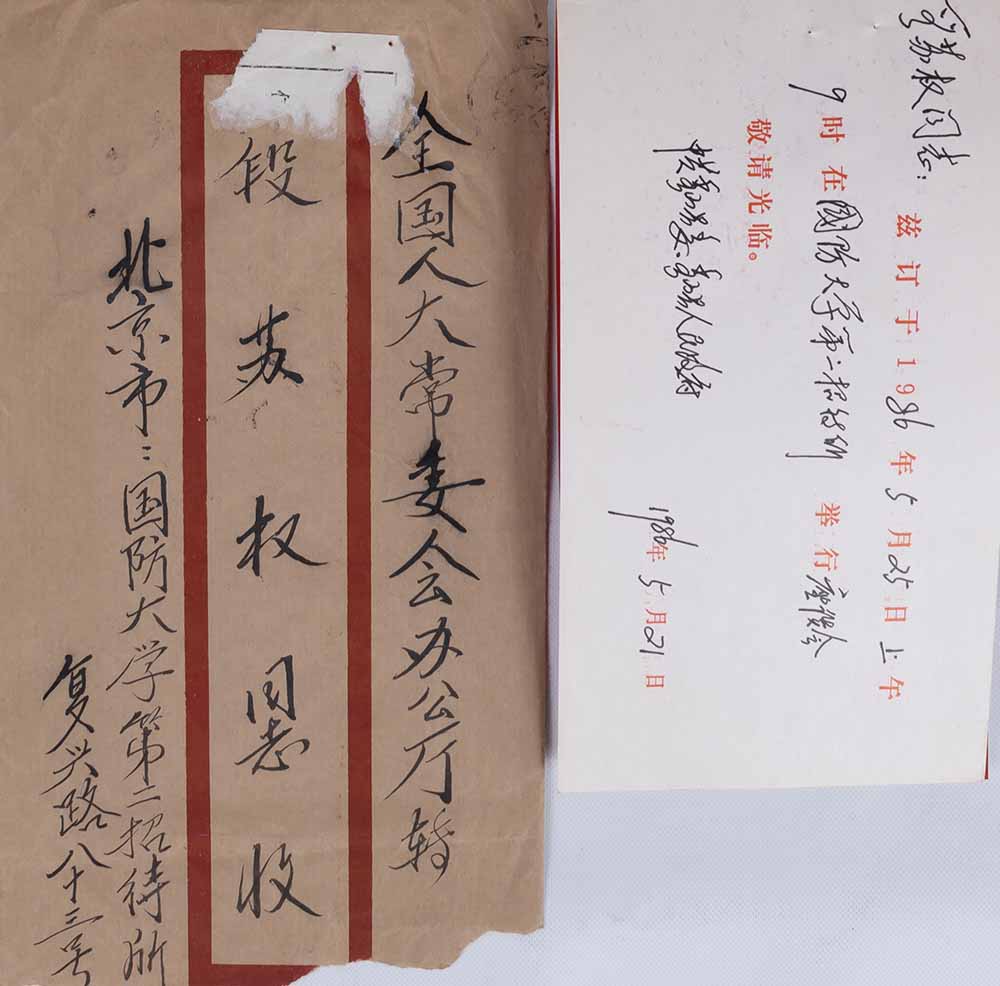 全国人大常委会办公厅转
段苏权同志收
北京市：国防大学第二招待所
复兴路八十三号
苏权同志：
兹订于1986年5月25日上午
9时在國防大学第二招待所举行座谈会
敬请光临。
中共秀山县委、秀山县人民政府
1986年5月21日